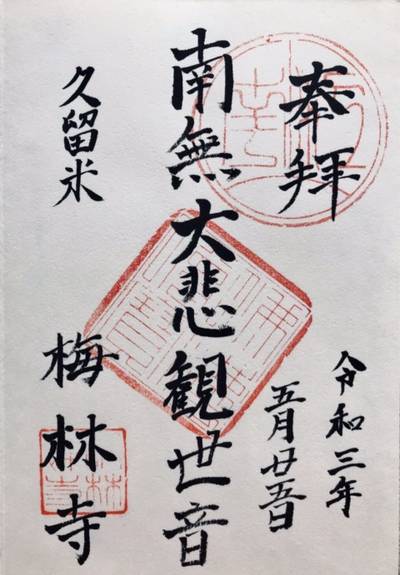 奉拝
令和三年
五月廿五日
南無大悲観世音
久留米
梅林寺